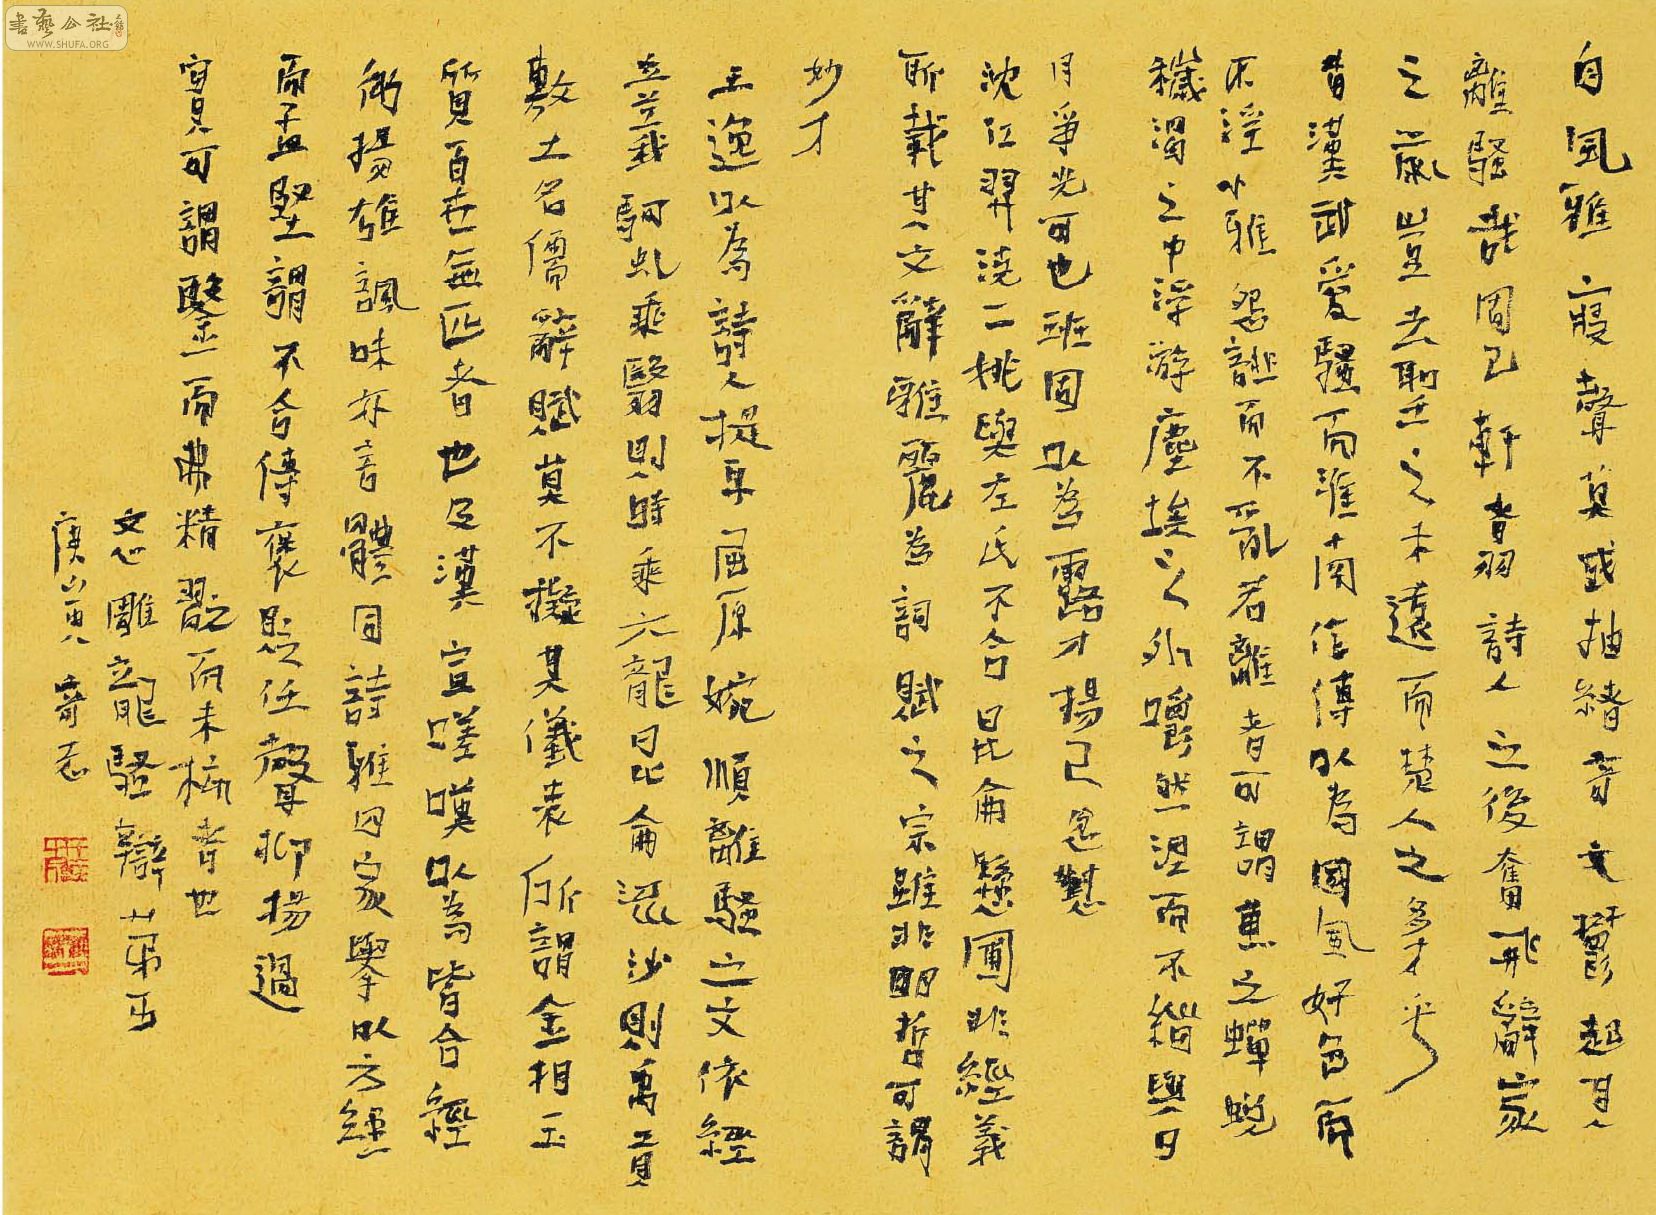 自風雅寢聲莫或抽緒奇文鬱起其
離騷哉固已軒翥詩人之後奮飛辭家
之前豈去聖之未遠而楚人之多才乎
昔漢武愛騷而淮南作傳以為國風好色而
不淫小雅怨誹而不亂若離騷者可謂兼之蟬蛻
穢濁之中浮游塵埃之外皭然涅而不緇與日
月爭光可也班固以為露才揚己忿懟
沈江羿澆二姚與左氏不合昆侖懸圃非經義
所載其文辭雅麗為詞賦之宗雖非明哲可謂
妙才
王逸以為詩人提耳屈原婉順離騷之文依經
立義駟虬乘翳則時乘六龍昆侖流沙則禹貢
敷土名儒辭賦莫不擬其儀表所謂金相玉
質百世無匹者也及漢宣嗟嘆以為皆合經
術揚雄諷味亦言體同詩雅四家舉以方經
而孟堅謂不合傳褒貶任聲抑揚過
實可謂鑒而弗精翫而未核者也
文心雕龍 辯騷 第五
庚
書藝公社
WWW.SHUFA.ORG